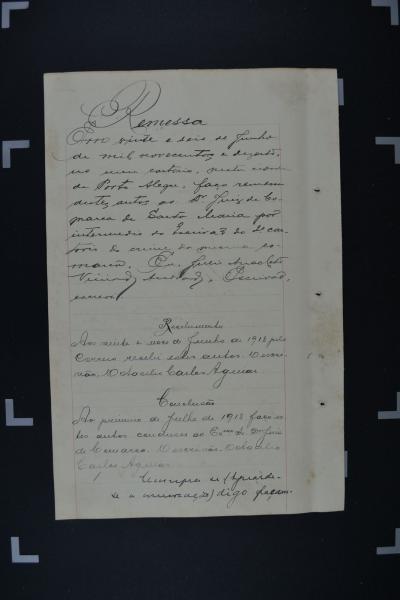 Remessa
Em vinte e seis de Junho
de mil novecentos e dezoito,
no meu cartorio, nesta
de Porto Alegre, faço remessa
destes autos ao Dr. Juiz de Co-
marca de Santa Maria por
intermedio do Escrivão do 2º car-
torio do crime da mesma co-
marca. Eu, Julio
Escrivão,
escrevi
Recebimento
Aos vinte e nove de Junho de 1918 pelo
Correio recebi estes autos. O escri-
vão, Octacilio Carlos Aguiar
Conclusão
Ao primeiro de Julho de 1918 faço es-
tes autos conclusos ao Exmo Sr. Dr. Juiz
de Comarca. O escrivão, Octacilio
Carlos Aguiar
Cumpra-se (
se a ) digo façam-